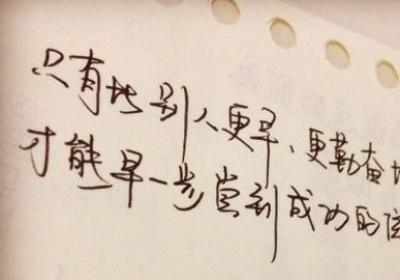 只有比别人更早、更勤奋
才能早一步尝到成功的